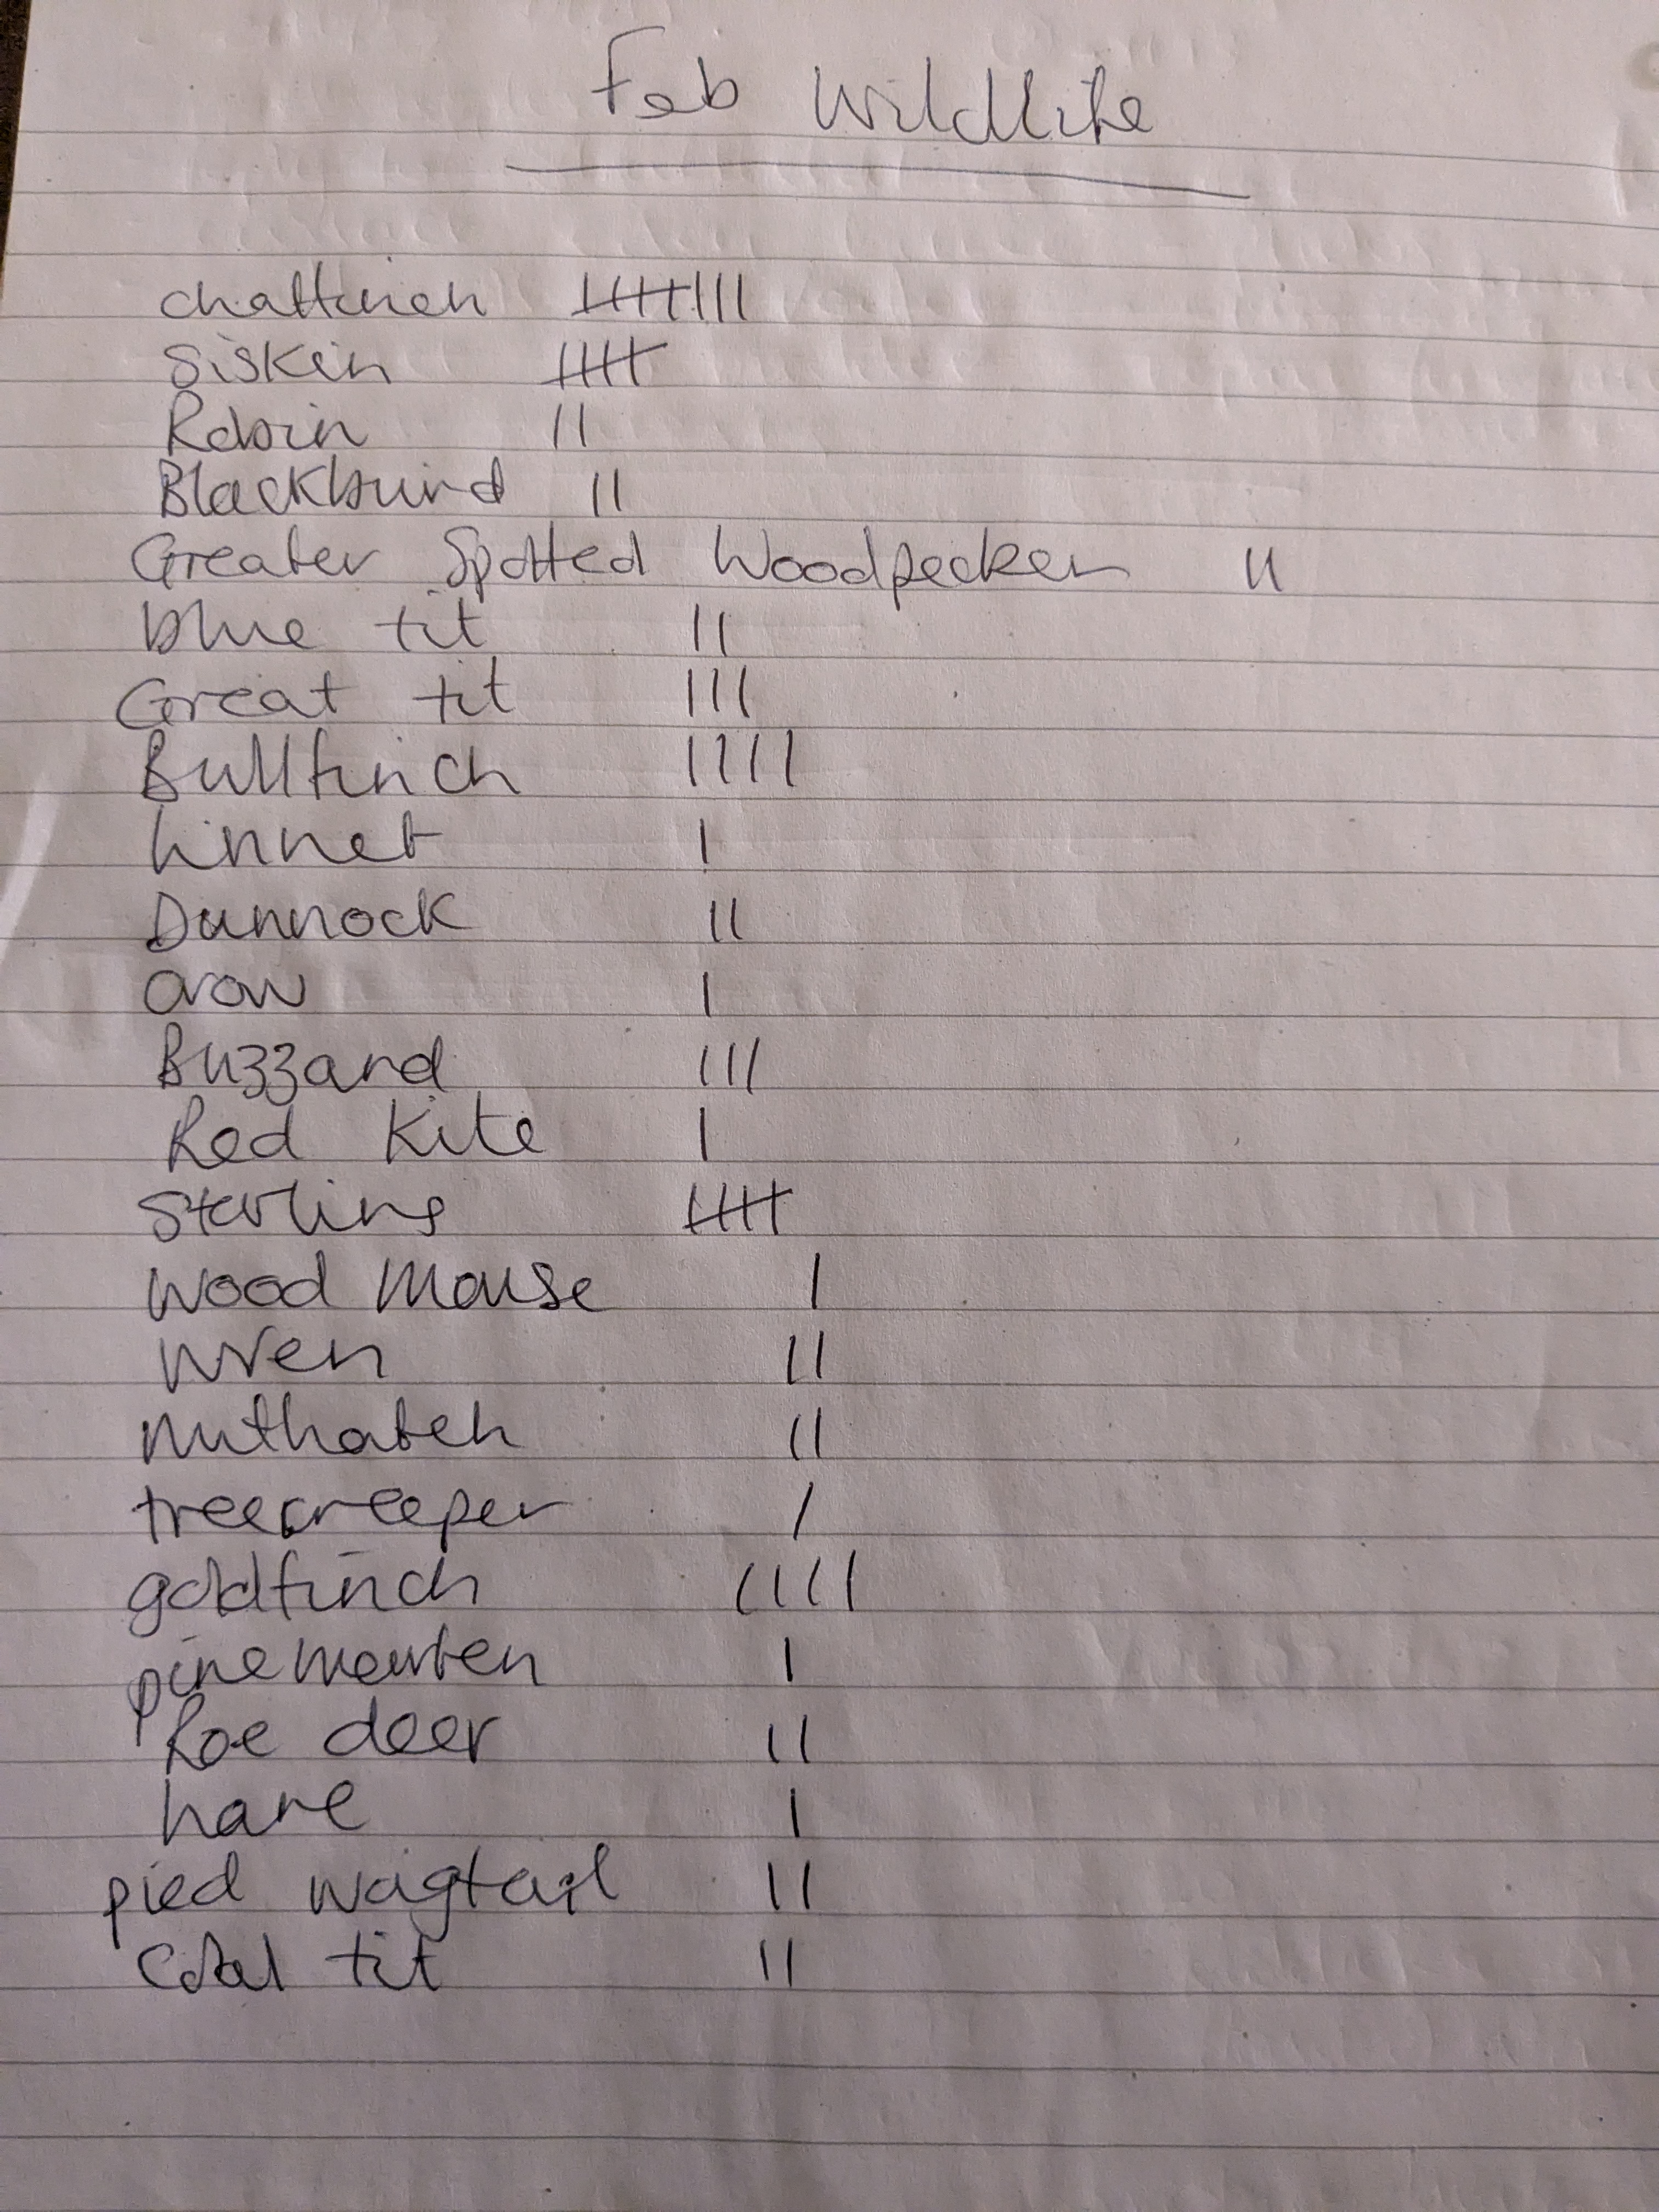 Feb Wildlife
chaffinch 卌 |||
Siskin 卌
Robin ||
Blackbird ||
Greater Spotted Woodpecker ||
blue tit ||
Great tit |||
Bullfinch ||||
Linnet |
Dunnock ||
crow |
Buzzard |||
Red Kite |
Starling 卌
Wood Mouse |
Wren ||
Nuthatch ||
treecreeper |
goldfinch ||||
pine marten |
Roe deer ||
hare |
pied wagtail ||
Coal tit ||